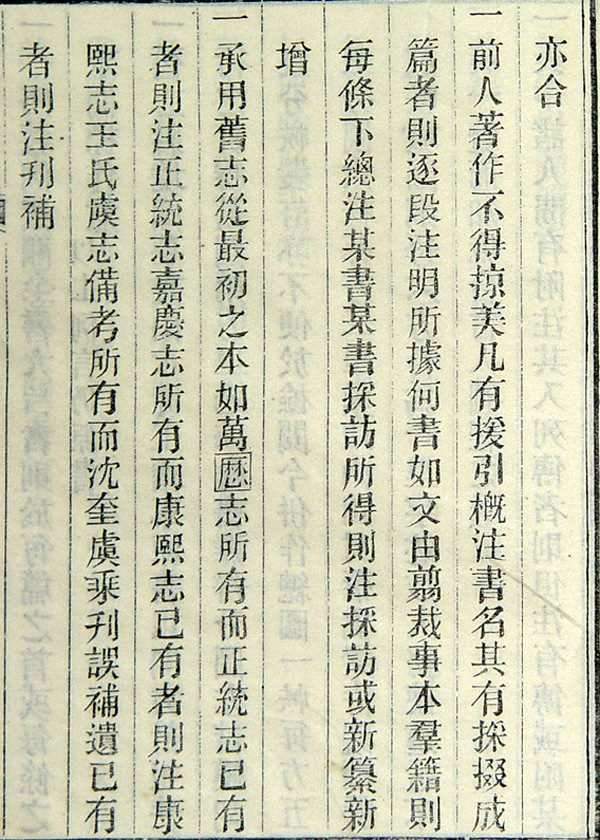 亦合
一前人著作不得掠美凡有援引概注書名其有採掇成
篇者則逐段注明所據何書如文由翦裁事本羣籍則
每條下總注某書某書採訪所得則注採訪或新纂新
增
一承用舊志從最初之本如萬厯志所有而正統志已有
者則注正統志嘉慶志所有而康熙志已有者則注康
熙志王氏虞志備考所有而沈奎虞乘刋誤補遺已有
者則注刋補